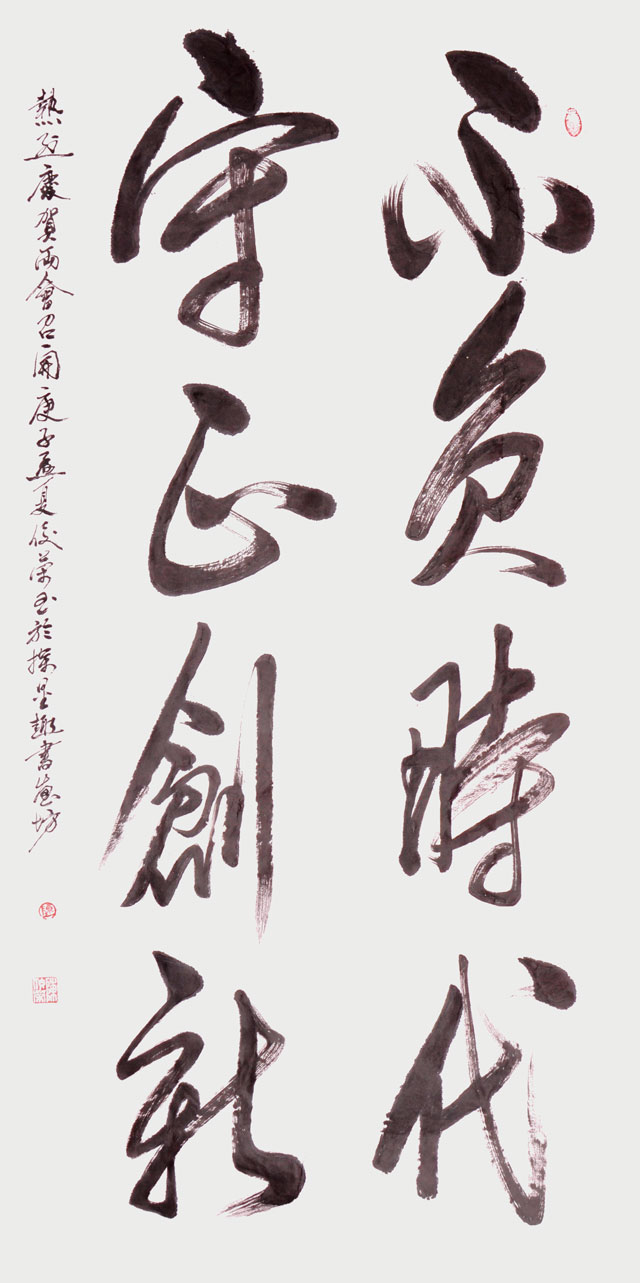 不负時代
守正創新
熱烈慶賀两會召開庚子孟夏俊荣書於探墨趣書畫坊